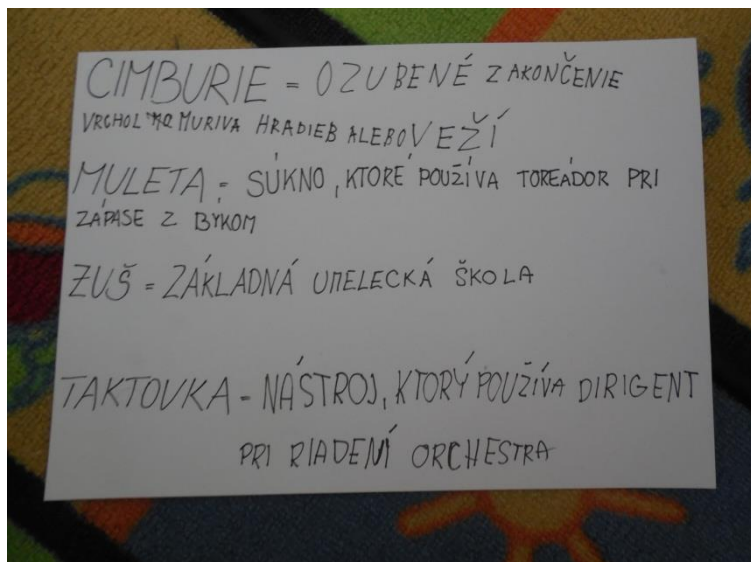 CIMBURIE = OZUBENÉ ZAKONČENIE
VRCHOLKA MURIVA HRADIEB ALEBO VEŽÍ
MULETA = SÚKNO, KTORÉ POUŽÍVA TOREÁDOR PRI
ZÁPASE Z BYKOM
ZUŠ = ZÁKLADNÁ UMELECKÁ ŠKOLA
TAKTOVKA = NÁSTROJ, KTORÝ POUŽÍVA DIRIGENT
PRI RIADENÍ ORCHESTRA